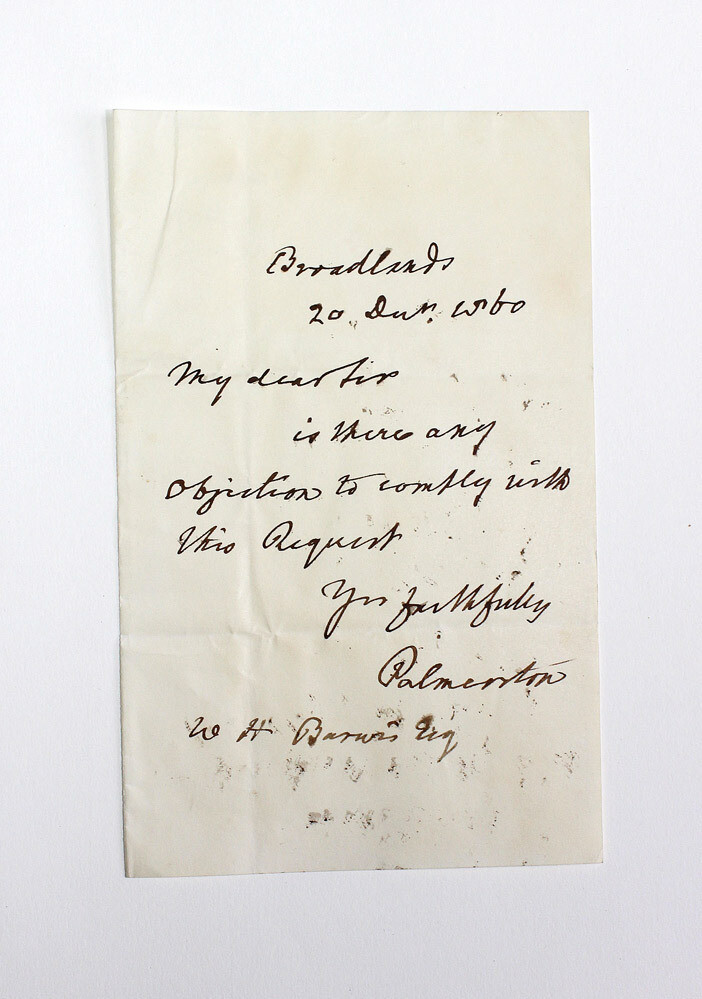 Broadlands
20 Decr. 1860
My dear Sir
is there any
objection to comply with
this Request
Yrs faithfully
Palmerston
W H Barwis Esq